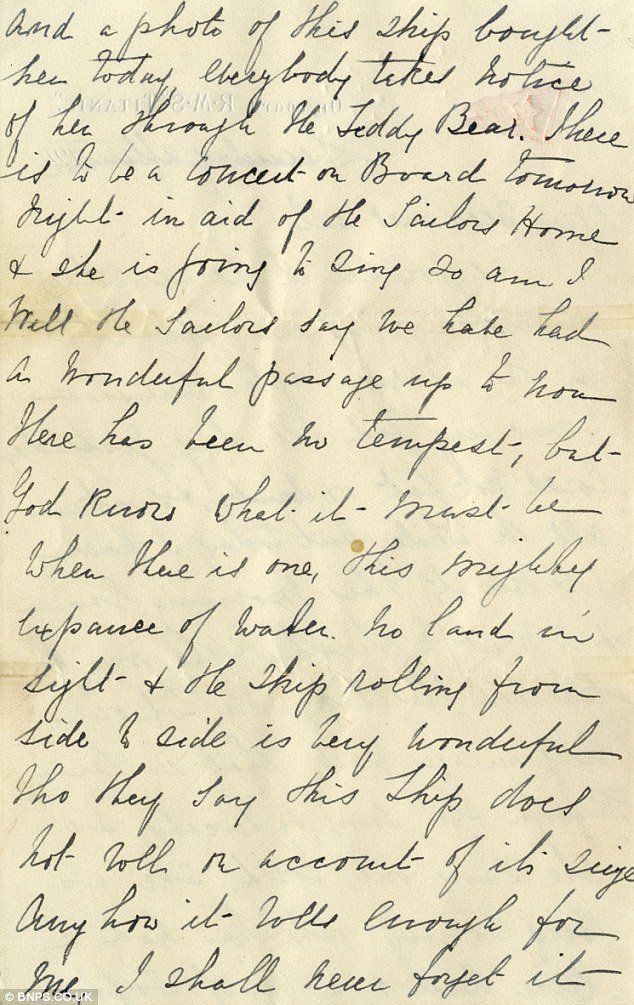 and a photo of this ship bought
her today everybody takes notice
of her through the Teddy Bear. There
is to be a concert on Board tomorrow
night in aid of the Sailors Home
& she is going to sing so am I
Well the sailors say we have had
a wonderful passage up to now
There has been no tempest, but
God knows what it must be
when there is one, this mighty
expance of water. no land in
sight & the ship rolling from
side to side is very wonderful
tho they say this Ship does
not roll on account of its size
Any how it rolls enough for
me, I shall never forget it
R.M.S. "TITANIC"
© BNPS.CO.UK